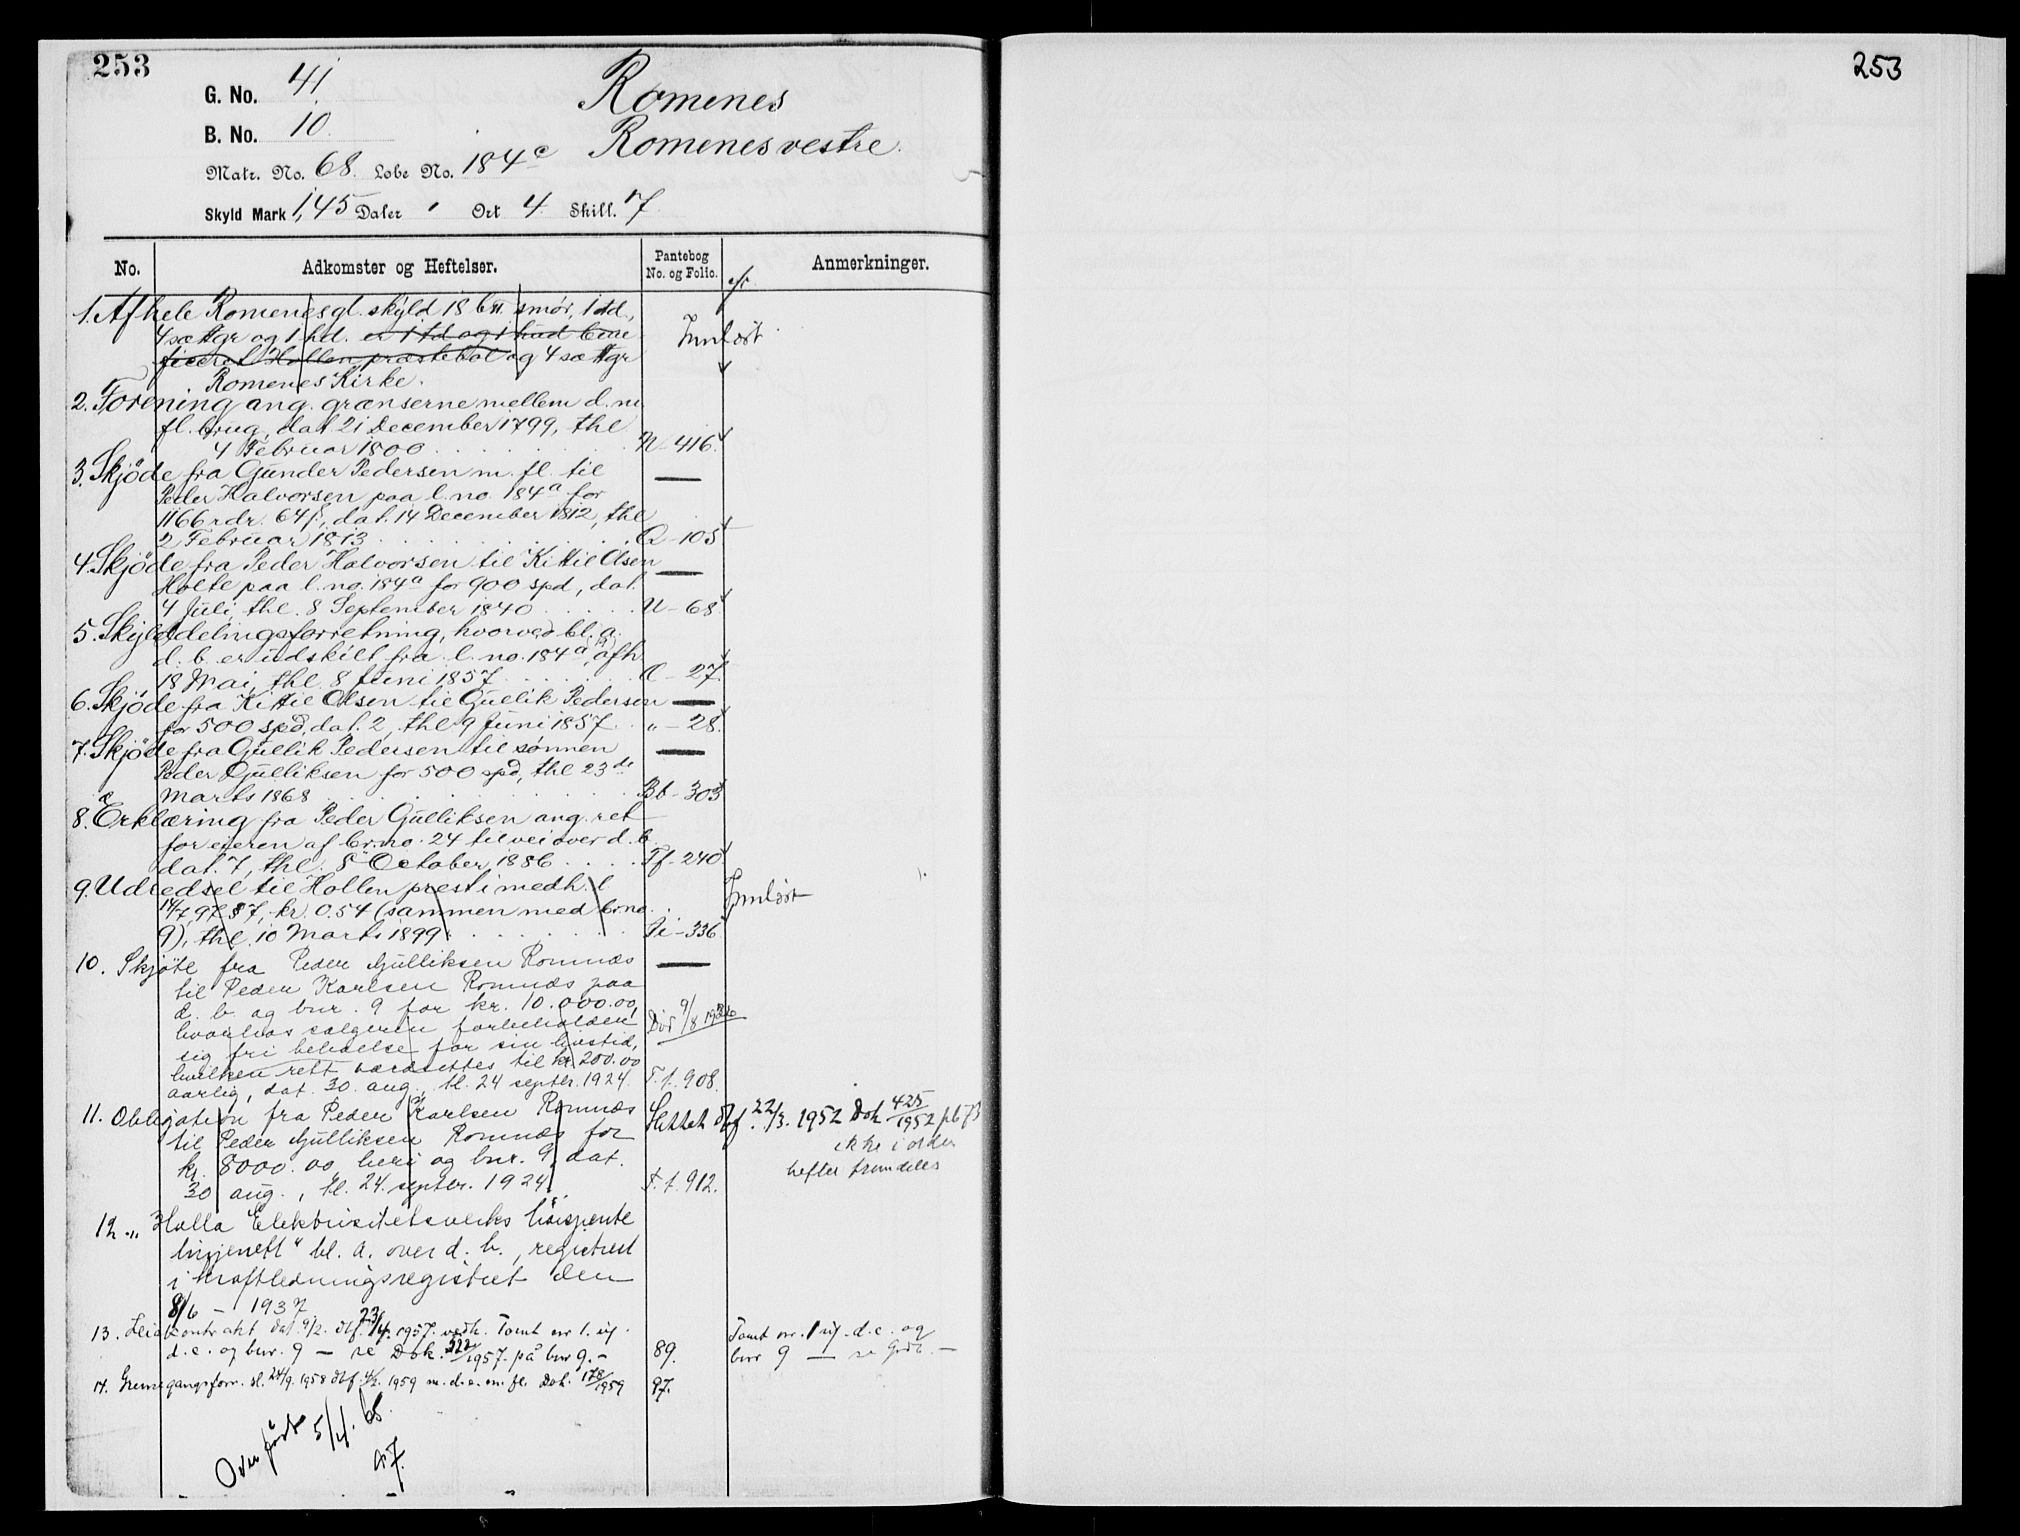 253
G. No. 41
B. No. 10.
Matr. No. 68. Løbe No. 184c
Skyld Mark 1,45 Daler " Ort 4 Skill. 7
Romenes
Romenes vestre.
No. Adkomster og Heftelser. Pantebog No. og Folio. Anmerkninger.
1. Af hele Romenes gl. skyld 18 bn. smør, 1 td.,
4 sættgr og 1 hd. er 1 td og 1 hud bene-
ficeret Hollen præstebol og 4 sættgr
Romenes Kirke. Innløst
2. Forening ang. grænserne mellem d. m.
fl. brug, dat 21 December 1799, thl
4 Februar 1800 N - 416.
3. Skjöde fra Gunder Pedersen m. fl. til
Peder Halvorsen paa l. no. 184a for
1166 rdr. 64 s, dat. 14 December 1812, thl
2 Februar 1813 Q - 105
4. Skjöde fra Peder Halvorsen til Kittil Olsen
Holte paa l. no. 184a for 900 spd, dat.
4 Juli, thl. 8 September 1840 U - 68.
5. Skylddelingsforretning, hvorved bl. a.
d. b. er udskilt fra l. no. 184a, afh
18 Mai, thl. 8 Juni 1857 27.
6. Skjöde fra Kittil Olsen til Gullik Pedersen
for 500 spd, dat. 2, thl 9 Juni 1857 " - 28.
7. Skjöde fra Gullik Pedersen til sønnen
Peder Gulliksen for 500 spd, thl 23de
Marts 1868 Bb - 303
8. Erklæring fra Peder Gulliksen ang. ret
for eieren af br. no. 24 til vei over d. b.
dat. 7, thl. 8 October 1886 Ff - 240.
9. Udredsel til Hollen prest i medh. l
14/7 97 § 7, kr. 0.54 (sammen med br. no.
9), thl. 10 Marts 1899 Ii - 336 Innløst
10. Skjöte fra Peder Gulliksen Romnæs
til Peder Karlsen Romnæs paa
d. b. og bnr. 9 for kr. 10.000.00,
hvorhos sælgeren forbeholder
sig fri beboelse for sin livstid,
hvilken rett værdsettes til kr 200.00
aarlig, dat. 30. aug., tl. 24 septbr. 1924. F. f. 908.
11. Obligation fra Peder Karlsen Romnæs
til Peder Gulliksen Romnæs for
kr. 8000.00 heri og bnr. 9, dat.
30 aug., tl. 24. septbr. 1924. F. f. 912.
Slettet dbf. 22/3. 1952 Dok 425/1952 pb 73
ikke i orden
hefter fremdeles
12. „Holla Elektrisitetsverks høispente
linjenett" bl. a. over d. b., registrert
i kraftledningsregistret den
8/6 - 1937
13. Leiekontrakt dat. 9/2. dbf. 23/4. 1957. vedk. Tomt nr 1. utf.
d. e. og bnr. 9 — se Dok. 322/1957 på bnr 9. - 89.
Tomt nr. 1 utf. d. e. og
bnr 9 — se —
14. Grensegangsforr. sl. 24/9. 1958 dbf 4/2. 1959 m. d. e. m. fl. Dok. 178/1959 97.
Overført 5/4. 68.
253